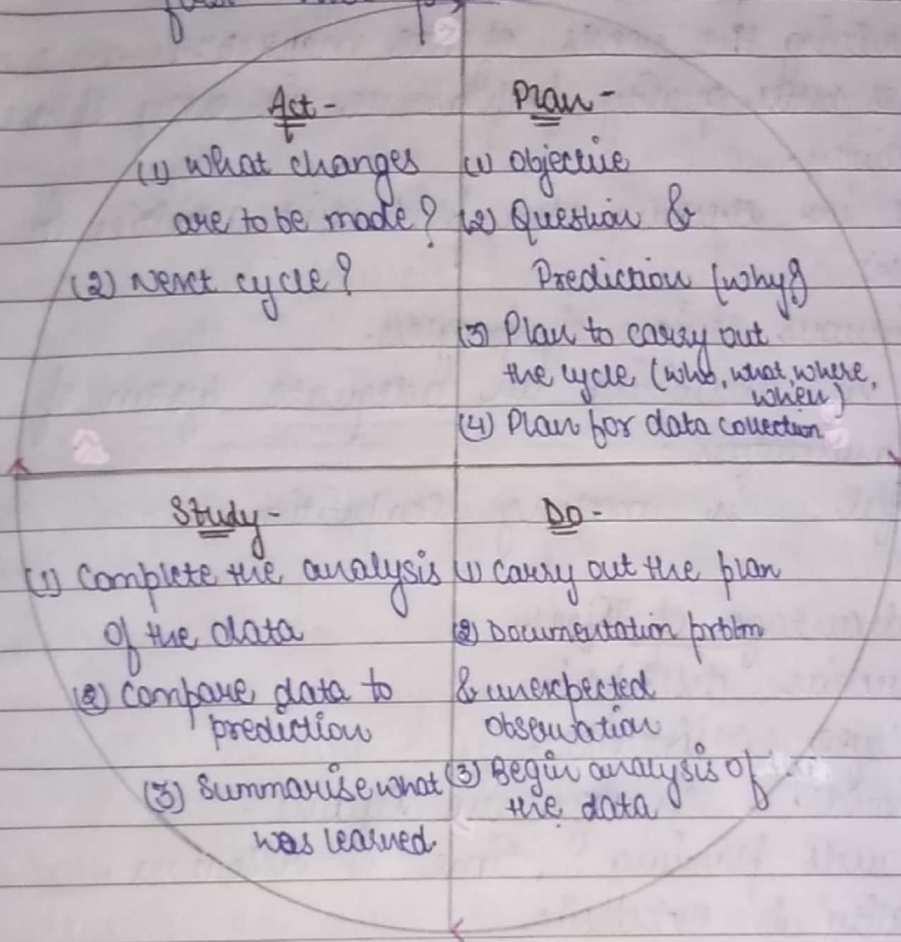 Act -
(1) What changes
are to be made?
(2) Next cycle?
Plan -
(1) Objective
(2) Question &
Prediction (why?)
(3) Plan to carry out
the cycle (who, what, where,
when)
(4) Plan for data collection
Study -
(1) Complete the analysis
of the data
(2) Compare data to
prediction
(3) Summarise what
was learned.
Do -
(1) Carry out the plan
(2) Documentation problm
& unexpected
observation
(3) Begin analysis of
the data